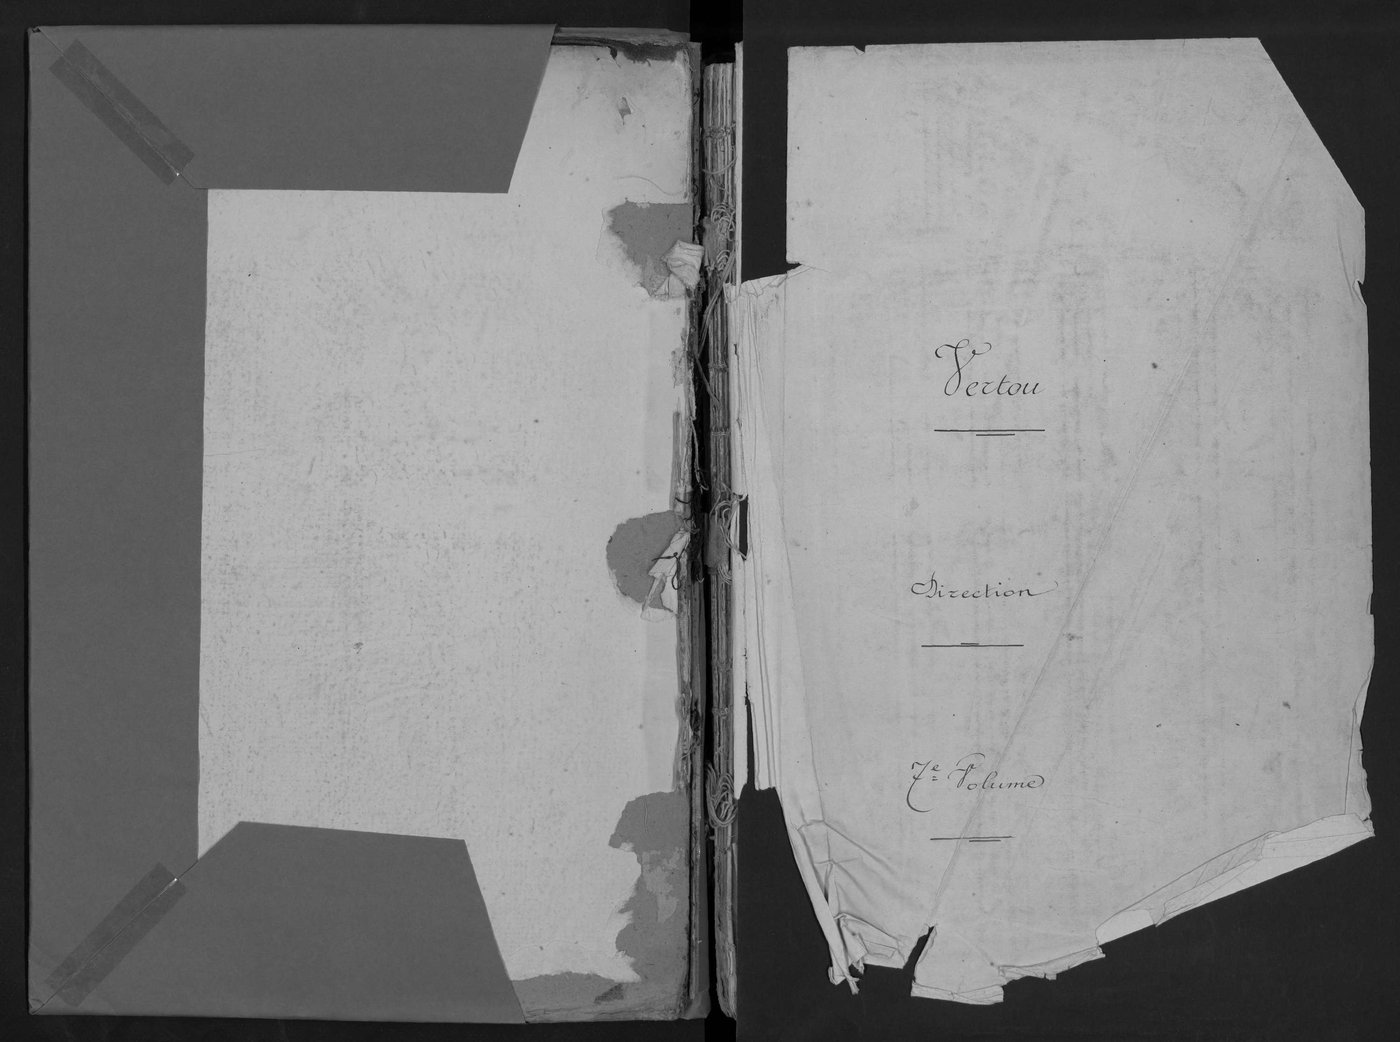 Vertou
Direction
7e Volume